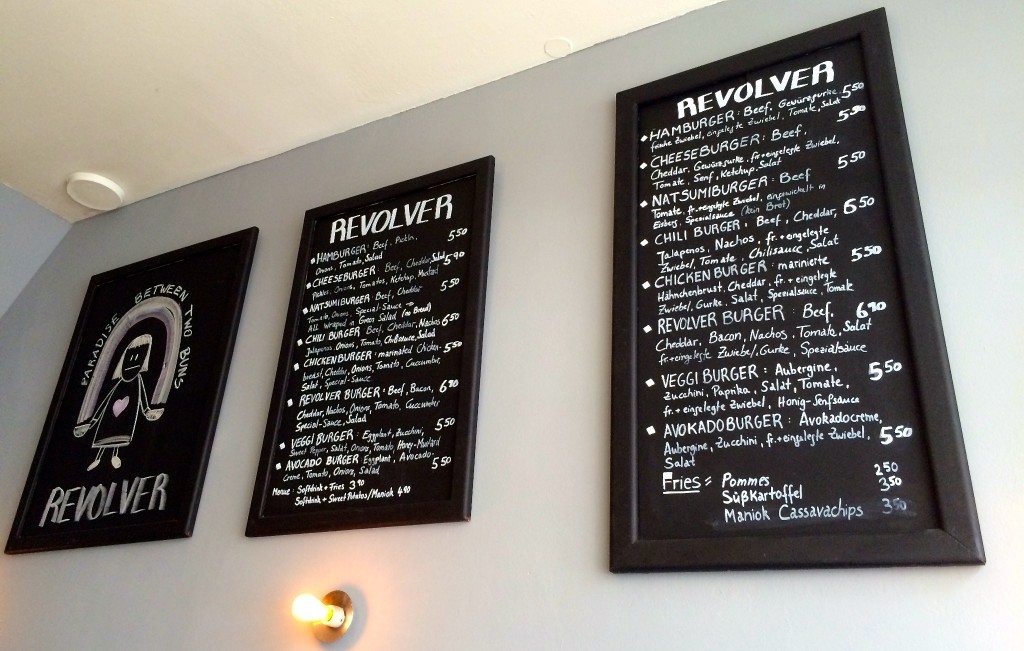 PARADISE BETWEEN TWO BUNS
REVOLVER
REVOLVER
HAMBURGER: Beef, Pickle, 550
Onions, Tomato, Salad
CHEESEBURGER: Beef, Cheddar, Salad 590
Pickles, Onions, Tomatos, Ketchup, Mustard
NATSUMIBURGER: Beef, Cheddar 550
Tomato, Onions, Special-Sauce
All wrapped in Green Salad (no Bread)
CHILI BURGER Beef, Cheddar, Nachos 650
Jalapenos, Onions, Tomato, Chilisauce, Salad
CHICKENBURGER: marinated Chicken- 550
breast, Cheddar, Onions, Tomato, Cuccumber
Salad, Special-Sauce
REVOLVER BURGER: Beef, Bacon, 690
Cheddar, Nachos, Onions, Tomato, Cuccumber
Special-Sauce, Salad
VEGGI BURGER: Eggplant, Zucchini, 5.50
Sweet Pepper, Salat, Onions, Tomato Honey-Mustard
AVOCADO BURGER: Eggplant, Avocado- 5 50
Creme, Tomato, Onions, Salad
Menue: Softdrink + Fries 3 90
Softdrink + Sweet Potatos/Maniok 4 90
REVOLVER
HAMBURGER: Beef, Gewürzgurke 550
frische Zwiebel, eingelegte Zwiebel, Tomate, Salat
CHEESEBURGER: Beef,
Cheddar, Gewürzgurke, fr.+eingelegte Zwiebel
Tomate, Senf, Ketchup, Salat
NATSUMIBURGER: Beef 550
Tomate, fr.+eingelegte Zwiebel, eingewickelt in
Eisberg, Spezialsauce (kein Brot)
CHILI BURGER, Beef, Cheddar, 650
Jalapenos, Nachos, fr.+eingelegte
Zwiebel, Tomate, Chilisauce, Salat
CHICKENBURGER: marinierte 550
Hähnchenbrust, Cheddar, fr.+eingelegte
Zwiebel, Gurke, Salat, Spezialsauce, Tomate
REVOLVER BURGER: Beef, 690
Cheddar, Bacon, Nachos, Tomate, Salat
fr+eingelegte Zwiebel, Gurke, Spezialsäuce
VEGGI BURGER: Aubergine, 550
Zucchini, Paprika, Salat, Tomate,
fr.+eingelegte Zwiebel, Honig-Senfsauce
AVOKADOBURGER: Avokadocreme,
Aubergine, Zucchini, fr.+eingelegte Zwiebel, 550
Salat
Fries = Pommes 250
Süßkartoffel 350
Maniok Cassavachips 350